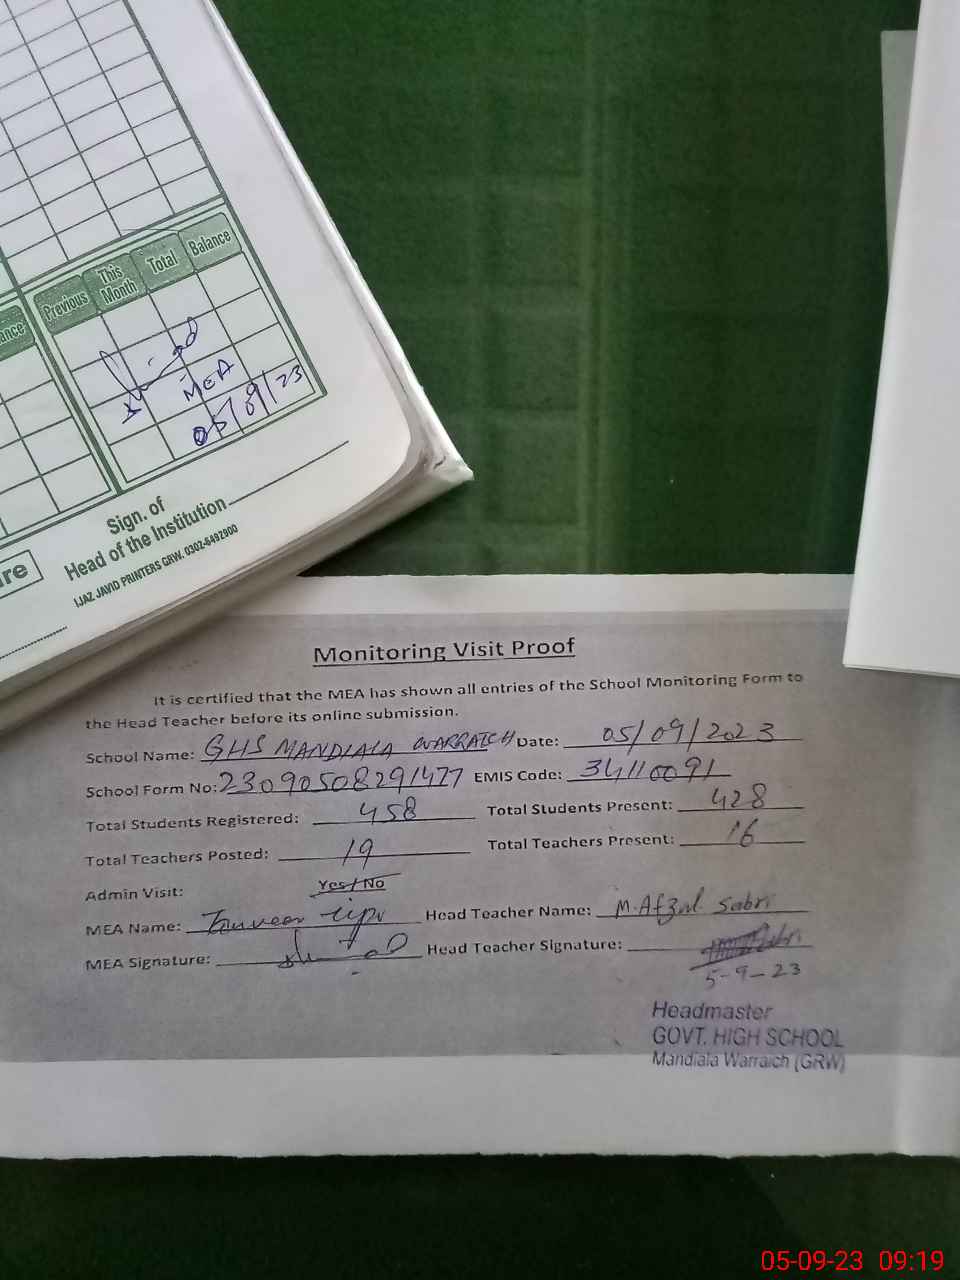 Previous This Month Total Balance
ance
MEA
05/9/23
Sign. of
Head of the Institution
IJAZ JAVID PRINTERS GRW. 0302-6492900
re
Monitoring Visit Proof
It is certified that the MEA has shown all entries of the School Monitoring Form to
the Head Teacher before its online submission.
School Name: GHS MANDIALA WARRAICH Date: 05/09/2023
School Form No: 23090508291477 EMIS Code: 34110091
Total Students Registered: 458 Total Students Present: 428
Total Teachers Posted: 19 Total Teachers Present: 16
Admin Visit: Yes/No
MEA Name: Tanveer Tipu Head Teacher Name: M. Afzal Sabri
MEA Signature: Head Teacher Signature:
5-9-23
Headmaster
GOVT. HIGH SCHOOL
Mandiala Warraich (GRW)
05-09-23 09:19